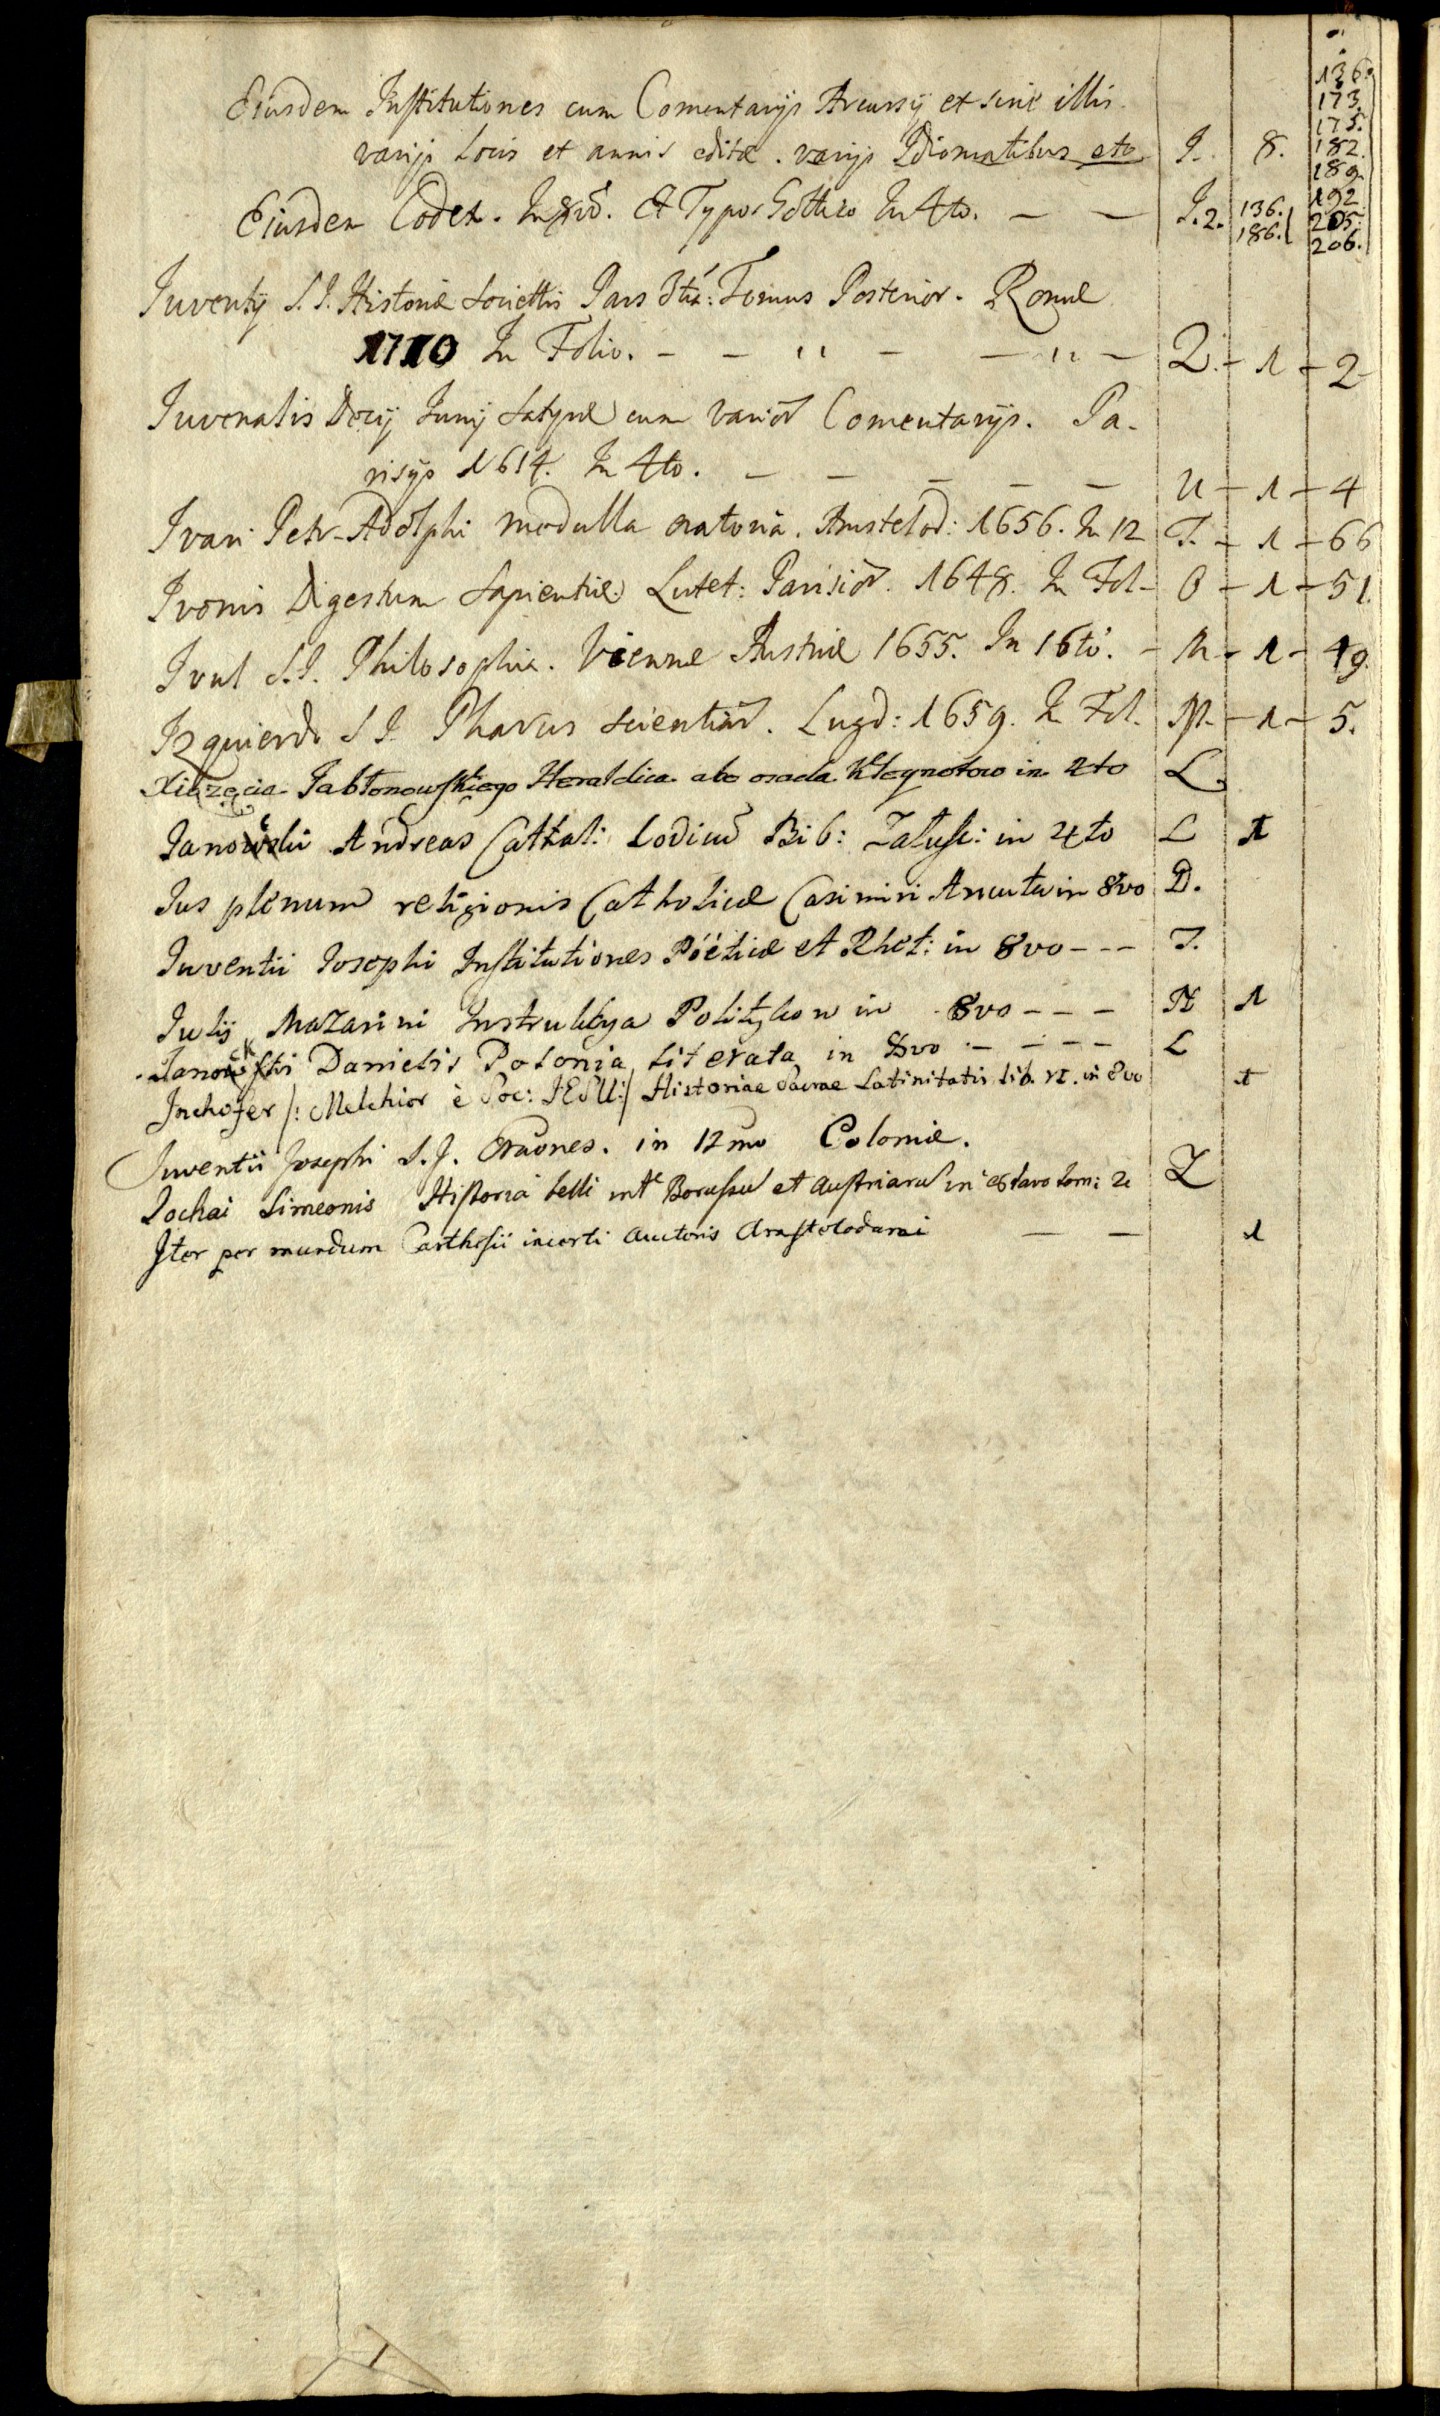 136.
173.
Eiusdem Institutiones cum Comentarijs Arcursij et sine illis.
175.
varijs Locis et annis editæ. varijs Idiomatibus etc I. 8. 182.
189.
Eiusdem Codex. In 8vô. Et Typo Gottico In 4to. — — I.2. 136. 192.
186. 205.
206.
Juventij S.I. Historiæ Societtis Pars 5ta: Tomus Posterior. Romæ
1710 In Folio. - - " - - " - Q. - 1 - 2
Juvenalis Decij Junij Satyræ cum varior Comentarijs. Pa-
risijs 1614. In 4to. — — — — — U - 1 - 4
Ivari Petr-Adolphi modulla oratoria. Amstelod: 1656. In 12 T. - 1 - 66
Ivonis Digestum Sapientiæ. Lutet: Parisior. 1648. In Fol- O - 1 - 51.
Ivul S.I. Philosophia. Viennæ Austriæ 1655. In 16tó. - M - 1 - 49.
Izquierdo S I. Pharus scientiar. Lugd: 1659. In Fol. M. - 1 - 5.
Xiążęcia Jabłonowskiego Heraldica abo osada Kleynotow in 4to L
Janowski Andreas Cathal: Codicum Bib: Załusc: in 4to L 1
Jus plenum religionis Catholicæ Casimiri Ancuta in 8vo D.
Juventii Josephi Institutiones Póéticæ et Rhet: in 8vo - - - T.
Julij Mazarini Instrukcya Politykow in 8vo - - - N 1
Janockski Danielis Polonia literata in 8vo - - - - L
Inchofer /: Melchior è Soc: JESU:/ Historiae Sacrae Latinitatis lib. VI. in 8vo 1
Juventii Josephi S.J. Oraones. in 12mo Coloniæ.
Jochai Simeonis Historia belli inte Borussu et Austriaru in octavo tom: 2 Z
Iter per mundum Carthesii incerti auctoris Amstelodami — — 1